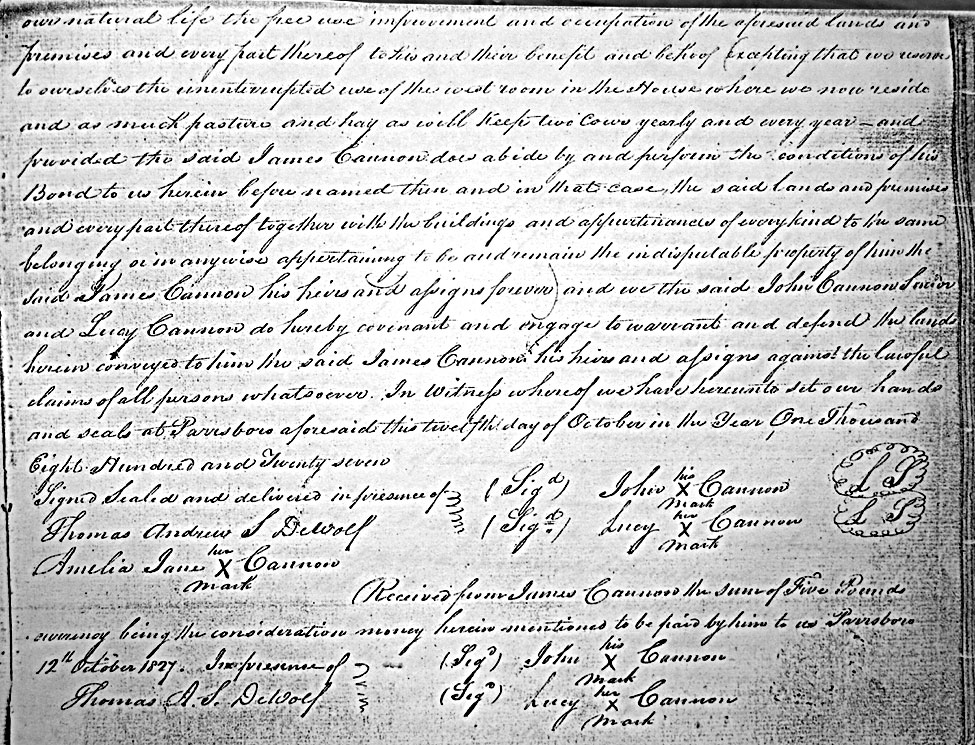 our natural life the free use improvement and occupation of the aforesaid lands and
premises and every part thereof to his and their benefit and behoof (excepting that we reserve
to ourselves the uninterrupted use of the west room in the House where we now reside
and as much pasture and hay as will keep two Cows yearly and every year – and
provided the said James Cannon does abide by and perform the conditions of his
Bond to us herein before named then and in that case, the said lands and premises
and every part thereof together with the buildings and appurtenances of every kind to the same
belonging or in anywise appertaining to be and remain the indisputable property of him the
said James Cannon his heirs and assigns forever) and we the said John Cannon Senior
and Lucy Cannon do hereby covenant and engage to warrant and defend the lands
herein conveyed to him the said James Cannon his heirs and assigns against the lawful
claims of all persons whatsoever. In Witness whereof we have hereunto set our hands
and seals at Parrsboro aforesaid this twelfth day of October in the Year One Thousand
Eight Hundred and Twenty seven
Signed Sealed and delivered in presence of (Sigd) John his X mark Cannon L S
Thomas Andrew S DeWolf (Sigd) Lucy her X mark Cannon L S
Amelia Jane her X mark Cannon
(Received from James Cannon the sum of Five Pounds
currency being the consideration money herein mentioned to be paid by him to us Parrsboro
12th October 1827. In presence of (Sigd) John his X mark Cannon
Thomas A. S. DeWolf (Sigd) Lucy her X mark Cannon